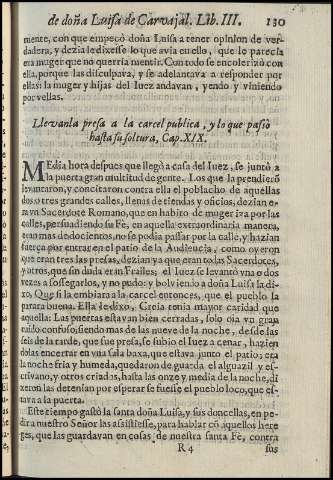 de doña Luisa de Carvajal. Lib. III. 130
miente, con que empeçó doña Luisa a tener opinion de ver-
dadera, y dezia le dixesse lo que avia en ello, que le parecia
era muger que no querria mentir. Con todo se encolerizó con
ella, porque las disculpava, y se adelantava a responder por
ellas: la muger y hijas del Iuez andavan, yendo y viniendo
por vellas.
Llevanla presa a la carcel publica, y lo que passò
hasta su soltura, Cap. XIX.
MEdia hora despues que llegò a casa del Iuez, se juntò a
la puerta gran multitud de gente. Los que la prendierõ
levantaron, y concitaron contra ella el poblacho de aquellas
dos o tres grandes calles, llenas de tiendas y oficios, dezian e-
ra vn Sacerdote Romano, que en habito de muger iva por las
calles, persuadiendo su Fè, en aquella extraordinaria manera,
eran mas de docientos, no se podia passar por la calle, y hazian
fuerça por entrar en el patio de la Audiēcia, como oyeron
que eran tres las presas, dezian ya que eran todas Sacerdotes,
y otros, que sin duda eran Frailes; el Iuez se levantó vna o dos
vezes a sossegarlos, y no pudo: y bolviendo a doña Luisa la di-
xo, Que si la embiara a la carcel entonces, que el pueblo la
parara buena. Ella le dixo, Creia tenia mayor caridad que
aquella: Las puertas estavan bien cerradas, solo oìa vn gran
ruido confuso, siendo mas de las nueve de la noche, desde las
seis de la tarde, que fue presa, se subio el Iuez a cenar, hazien
dolas encerrar en vna sala baxa, que estava junto al patio; era
la noche fria y humeda, quedaron de guarda el alguazil y es-
crivano, y otros criados, hasta las onze y media de la noche, di
zeron las detenian por esperar se fuesse el pueblo loco, que es-
tava a la puerta.
Este tiempo gastò la santa doña Luisa, y sus doncellas, en pe-
dir a nuestro Señor las assistiesse, para hablar cō aquellos here
ges, que las guardavan en cosas de nuestra santa Fè, contra
R 4 sus